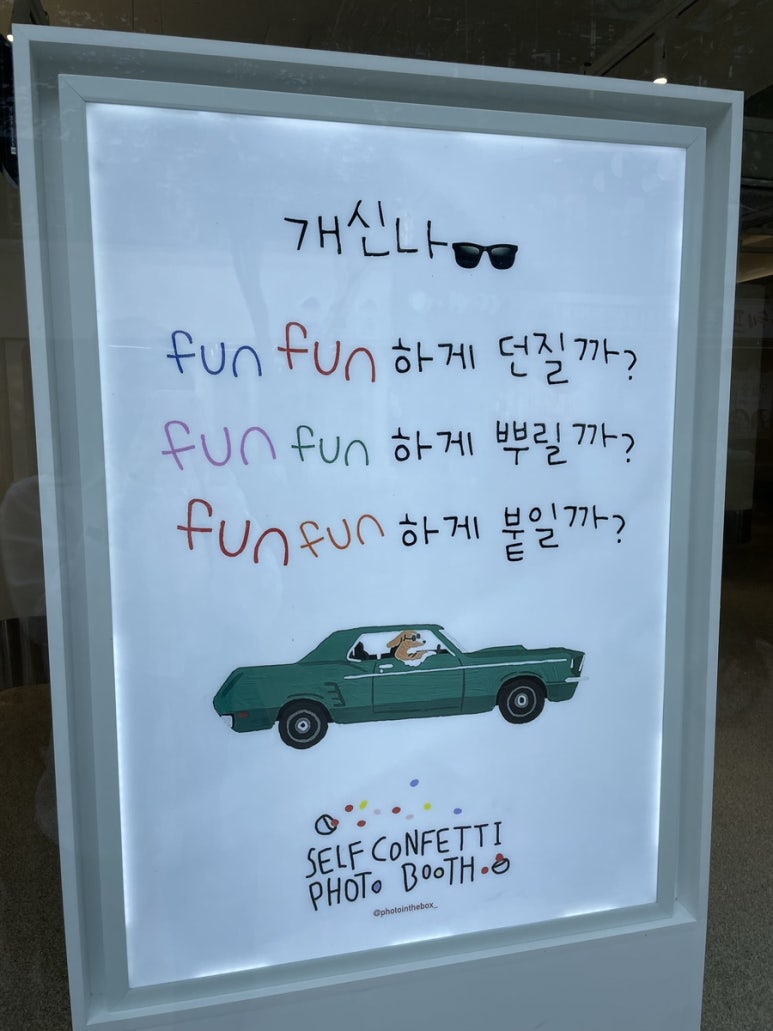 개신나
fun fun 하게 던질까?
fun fun 하게 뿌릴까?
fun fun 하게 붙일까?
SELF CONFETTI
PHOTO BOOTH
@photointhebox_